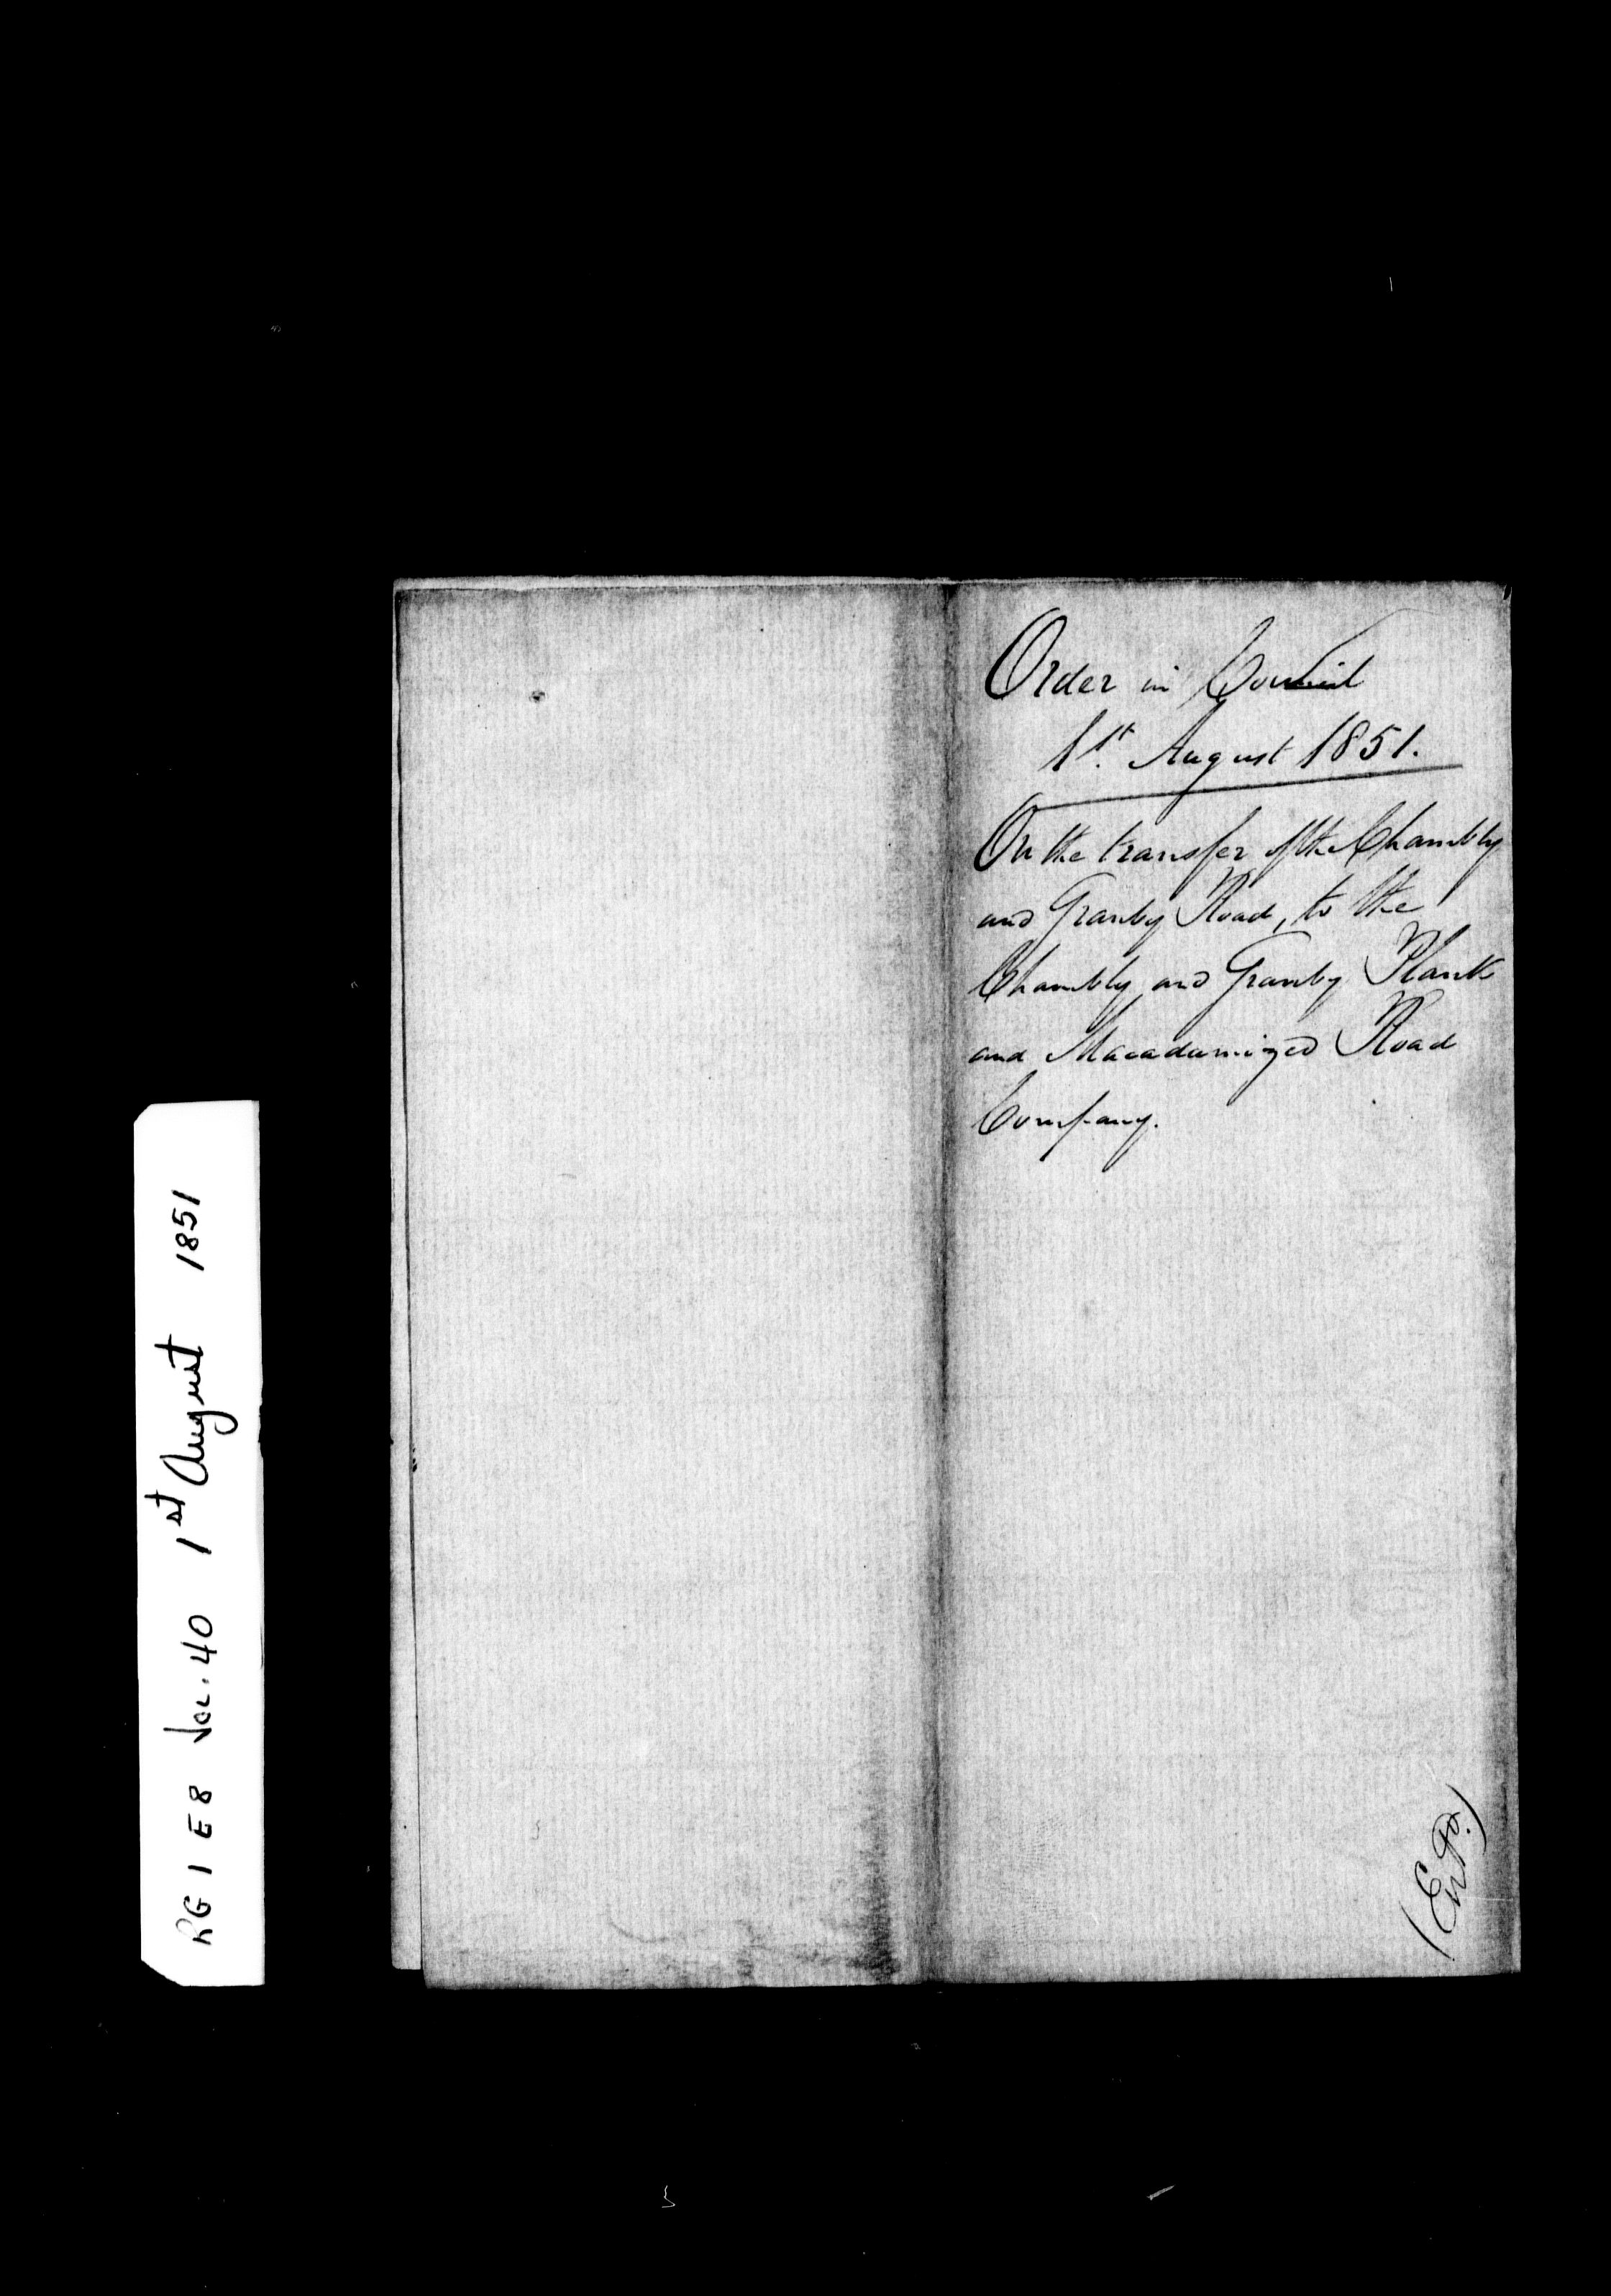 Order in Council
1st. August 1851.
On the transfer of the Chambly
and Granby Road, to the
Chambly and Granby Plank
and Macadamized Road
Company.
RG 1 E8 Vol. 40 1st August 1851